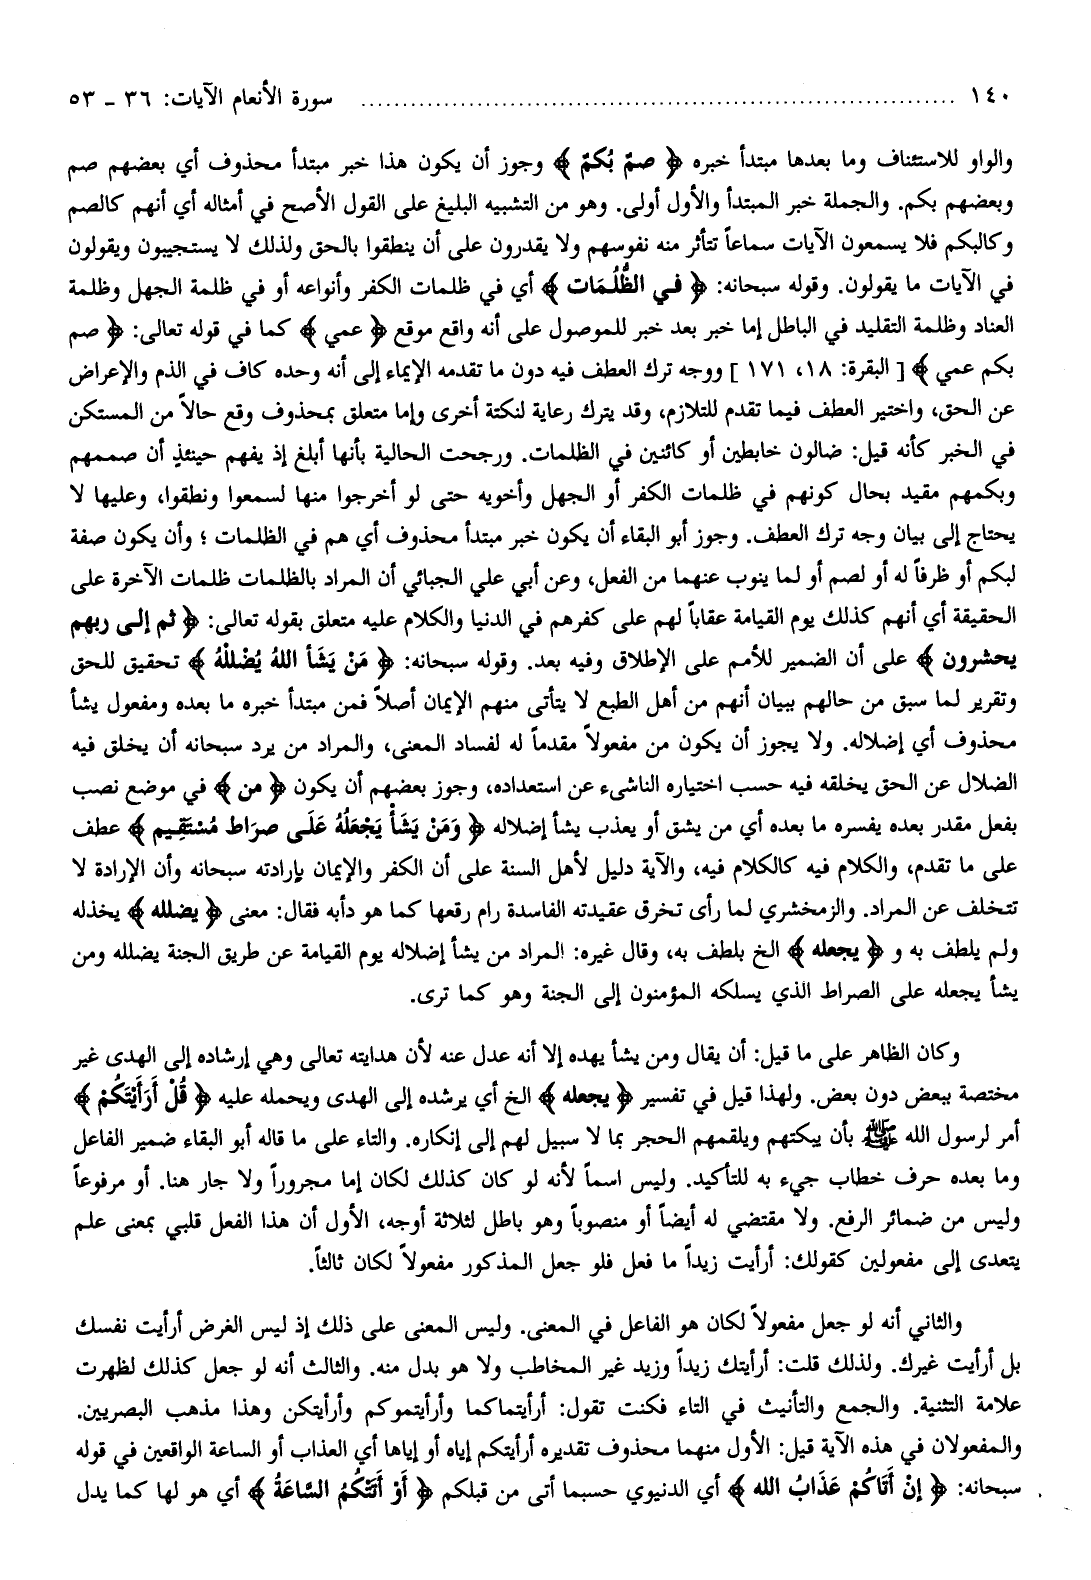 ١٤٠ ............................................................ سورة الأنعام الآيات: ٣٦ ـ ٥٣
والواو للاستئناف وما بعدها مبتدأ خبره ﴿ صمٌ بُكمٌ ﴾ وجوز أن يكون هذا خبر مبتدأ محذوف أي بعضهم صم
وبعضهم بكم. والجملة خبر المبتدأ والأول أولى. وهو من التشبيه البليغ على القول الأصح في أمثاله أي أنهم كالصم
وكالبكم فلا يسمعون الآيات سماعاً تتأثر منه نفوسهم ولا يقدرون على أن ينطقوا بالحق ولذلك لا يستجيبون ويقولون
في الآيات ما يقولون. وقوله سبحانه: ﴿ في الظُّلُمَات ﴾ أي في ظلمات الكفر وأنواعه أو في ظلمة الجهل وظلمة
العناد وظلمة التقليد في الباطل إما خبر بعد خبر للموصول على أنه واقع موقع ﴿ عمي ﴾ كما في قوله تعالى: ﴿ صم
بكم عمي ﴾ [ البقرة: ١٨، ١٧١ ] ووجه ترك العطف فيه دون ما تقدمه الإيماء إلى أنه وحده كاف في الذم والإعراض
عن الحق، واختير العطف فيما تقدم للتلازم، وقد يترك رعاية لنكتة أخرى وإما متعلق بمحذوف وقع حالاً من المستكن
في الخبر كأنه قيل: ضالون خابطين أو كائنين في الظلمات. ورجحت الحالية بأنها أبلغ إذ يفهم حينئذٍ أن صممهم
وبكمهم مقيد بحال كونهم في ظلمات الكفر أو الجهل وأخويه حتى لو أخرجوا منها لسمعوا ونطقوا، وعليها لا
يحتاج إلى بيان وجه ترك العطف. وجوز أبو البقاء أن يكون خبر مبتدأ محذوف أي هم في الظلمات ؛ وأن يكون صفة
لبكم أو ظرفاً له أو لصم أو لما ينوب عنهما من الفعل، وعن أبي علي الجبائي أن المراد بالظلمات ظلمات الآخرة على
الحقيقة أي أنهم كذلك يوم القيامة عقاباً لهم على كفرهم في الدنيا والكلام عليه متعلق بقوله تعالى: ﴿ ثم إلى ربهم
يحشرون ﴾ على أن الضمير للأمم على الإطلاق وفيه بعد. وقوله سبحانه: ﴿ مَنْ يَشَأ اللهُ يُضْللْهُ ﴾ تحقيق للحق
وتقرير لما سبق من حالهم ببيان أنهم من أهل الطبع لا يتأتى منهم الإيمان أصلاً فمن مبتدأ خبره ما بعده ومفعول يشأ
محذوف أي إضلاله. ولا يجوز أن يكون من مفعولاً مقدماً له لفساد المعنى، والمراد من يرد سبحانه أن يخلق فيه
الضلال عن الحق يخلقه فيه حسب اختياره الناشىء عن استعداده، وجوز بعضهم أن يكون ﴿ من ﴾ في موضع نصب
بفعل مقدر بعده يفسره ما بعده أي من يشق أو يعذب يشأ إضلاله ﴿ وَمَنْ يَشَأْ يَجْعَلْهُ عَلَى صرَاط مُسْتَقِيم ﴾ عطف
على ما تقدم، والكلام فيه كالكلام فيه، والآية دليل لأهل السنة على أن الكفر والإيمان بإرادته سبحانه وأن الإرادة لا
تتخلف عن المراد. والزمخشري لما رأى تخرق عقيدته الفاسدة رام رقعها كما هو دأبه فقال: معنى ﴿ يضلله ﴾ يخذله
ولم يلطف به و ﴿ يجعله ﴾ الخ يلطف به، وقال غيره: المراد من يشأ إضلاله يوم القيامة عن طريق الجنة يضلله ومن
يشأ يجعله على الصراط الذي يسلكه المؤمنون إلى الجنة وهو كما ترى.
وكان الظاهر على ما قيل: أن يقال ومن يشأ يهده إلا أنه عدل عنه لأن هدايته تعالى وهي إرشاده إلى الهدى غير
مختصة ببعض دون بعض. ولهذا قيل في تفسير ﴿ يجعله ﴾ الخ أي يرشده إلى الهدى ويحمله عليه ﴿ قُلْ أَرَأَيْتَكُمْ ﴾
أمر لرسول الله ﷺ بأن يبكتهم ويلقمهم الحجر بما لا سبيل لهم إلى إنكاره. والتاء على ما قاله أبو البقاء ضمير الفاعل
وما بعده حرف خطاب جيء به للتأكيد. وليس اسماً لأنه لو كان كذلك لكان إما مجروراً ولا جار هنا. أو مرفوعاً
وليس من ضمائر الرفع. ولا مقتضي له أيضاً أو منصوباً وهو باطل لثلاثة أوجه، الأول أن هذا الفعل قلبي بمعنى علم
يتعدى إلى مفعولين كقولك: أرأيت زيداً ما فعل فلو جعل المذكور مفعولاً لكان ثالثاً.
والثاني أنه لو جعل مفعولاً لكان هو الفاعل في المعنى. وليس المعنى على ذلك إذ ليس الغرض أرأيت نفسك
بل أرأيت غيرك. ولذلك قلت: أرأيتك زيداً وزيد غير المخاطب ولا هو بدل منه. والثالث أنه لو جعل كذلك لظهرت
علامة التثنية. والجمع والتأنيث في التاء فكنت تقول: أرأيتماكما وأرأيتموكم وأرأيتكن وهذا مذهب البصريين.
والمفعولان في هذه الآية قيل: الأول منهما محذوف تقديره أرأيتكم إياه أو إياها أي العذاب أو الساعة الواقعين في قوله
سبحانه: ﴿ إنْ أَتَاكُمْ عَذَابُ الله ﴾ أي الدنيوي حسبما أتى من قبلكم ﴿ أَوْ أَتَتْكُمُ السَّاعَةُ ﴾ أي هو لها كما يدل